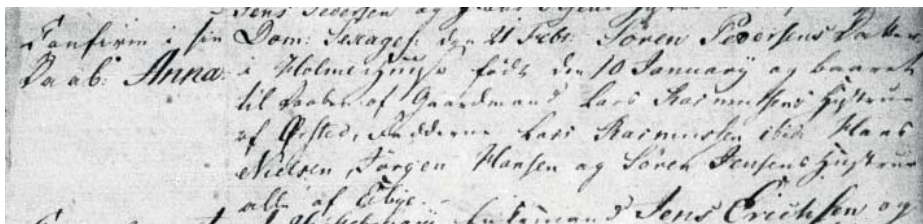 Jens Pedersen og
Confirm: i sin Dom: Sexages: den 21 Febr: Søren Pedersens Datter
Daab: Anna i Holmehuuse født den 10 January og baaret
til Daaben af Gaardmand Lars Rasmussens Hustrue
af Ørsted, Fadderne Lars Rasmussen ibid: Hans
Nielsen, Jørgen Hansen og Søren Jensens Hustrue
alle af Eibye.
Jens Erichsen og